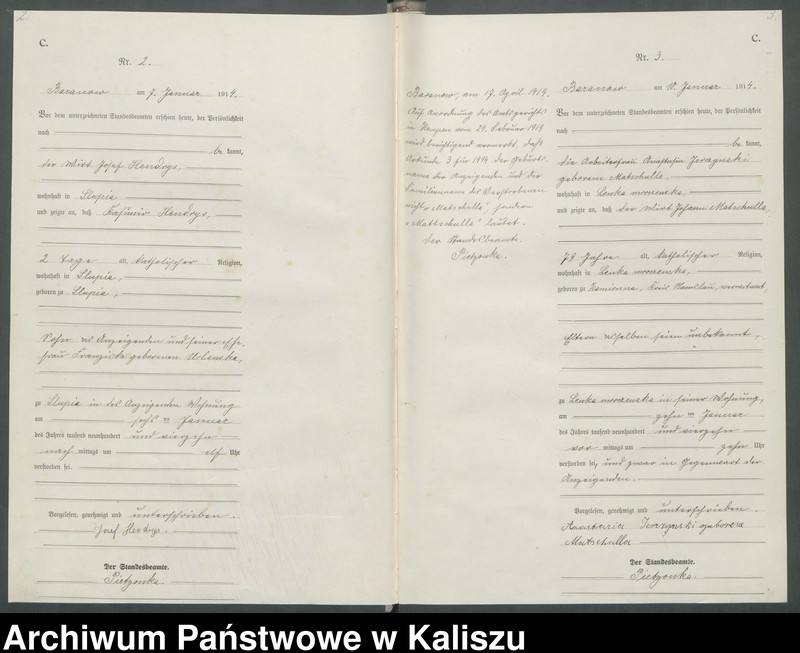 2.
C.
Nr. 2.
Baranow am 7. Januar 1914.
Vor dem unterzeichneten Standesbeamten erschien heute, der Persönlichkeit
nach
be kannt,
der Wirt Josef Hendrys,
wohnhaft in Slupia
und zeigte an, daß Kasimir Hendrys,
2 Tage alt, katholischer Religion,
wohnhaft in Slupia,
geboren zu Slupia,
Sohn des Anzeigenden und seiner Ehe-
frau Franziska geborenen Urbanska,
zu Slupia in des Anzeigenden Wohnung
am sechsten Januar
des Jahres tausend neunhundert und vierzehn
nach mittags um elf Uhr
verstorben sei.
Vorgelesen, genehmigt und unterschrieben.
Josef Hendrys.
Der Standesbeamte.
Pietzonka.
Baranow, am 17. April 1919.
Auf Anordnung des Amtsgerichts
in Kempen vom 21. Februar 1919
wird berichtigend vermerkt, daß
Urkunde 3 für 1914 der Geburts-
name der Anzeigenden und der
Familienname des Verstorbenen
nicht "Matschulle", sondern
"Mattschulla" lautet.
Der Standesbeamte.
Pietzonka.
3.
C.
Nr. 3.
Baranow am Januar 1914.
Vor dem unterzeichneten Standesbeamten erschien heute, der Persönlichkeit
nach
be kannt,
die Arbeiterfrau Anastasia
geborene Matschulla
wohnhaft in Lenka mroczenska,
und zeigte an, daß der Wirt Johann Matschulla,
78 Jahre alt, katholischer Religion,
wohnhaft in Lenka mroczenska,
geboren zu Kamienna, Kreis Namslau, verwitwet,
Eltern desselben seien unbekannt,
zu Lenka mroczenska in seiner Wohnung,
am zehnten Januar
des Jahres tausend neunhundert und vierzehn
vor mittags um zehn Uhr
verstorben sei, und zwar in Gegenwart der
Anzeigenden.
Vorgelesen, genehmigt und unterschrieben.
geborera
Matschulla
Der Standesbeamte.
Pietzonka.
Archiwum Państwowe w Kaliszu